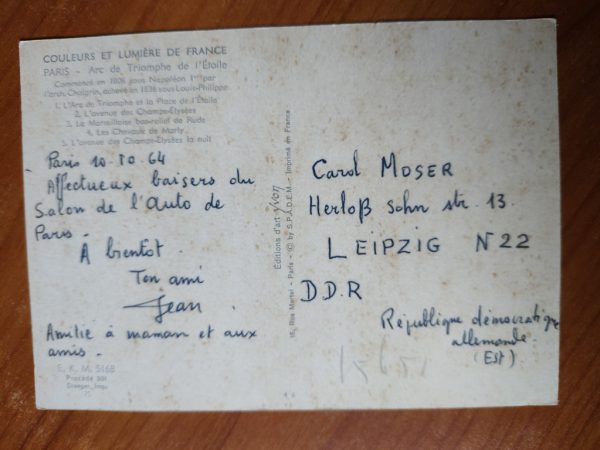 COULEURS ET LUMIÈRE DE FRANCE
PARIS - Arc de Triomphe de l'Étoile
Commencé en 1806 sous Napoléon 1er par
l'arch. Chalgrin, achevé en 1836 sous Louis-Philippe
1. L'Arc de Triomphe et la Place de l'Étoile
2. L'avenue des Champs-Élysées
3. La Marseillaise bas-relief de Rude
4. Les Chevaux de Marly
5. L'avenue des Champs-Élysées la nuit
Paris 10.10.64
Affectueux baisers du
Salon de l'auto de
Paris.
A bientot.
Ton ami
Jean
Amitié à maman et aux
amis.
E. K. M. 5168
Procédé 301
Draeger, Imp.
Editions d'art YVON
15, Rue Martel - Paris - © by S.P.A.D.E.M. - Imprimé en France
Carol MOSER
Herloß sohn str. 13.
LEIPZIG N 22
D.D.R
République démocratique
allemande.
(Est)